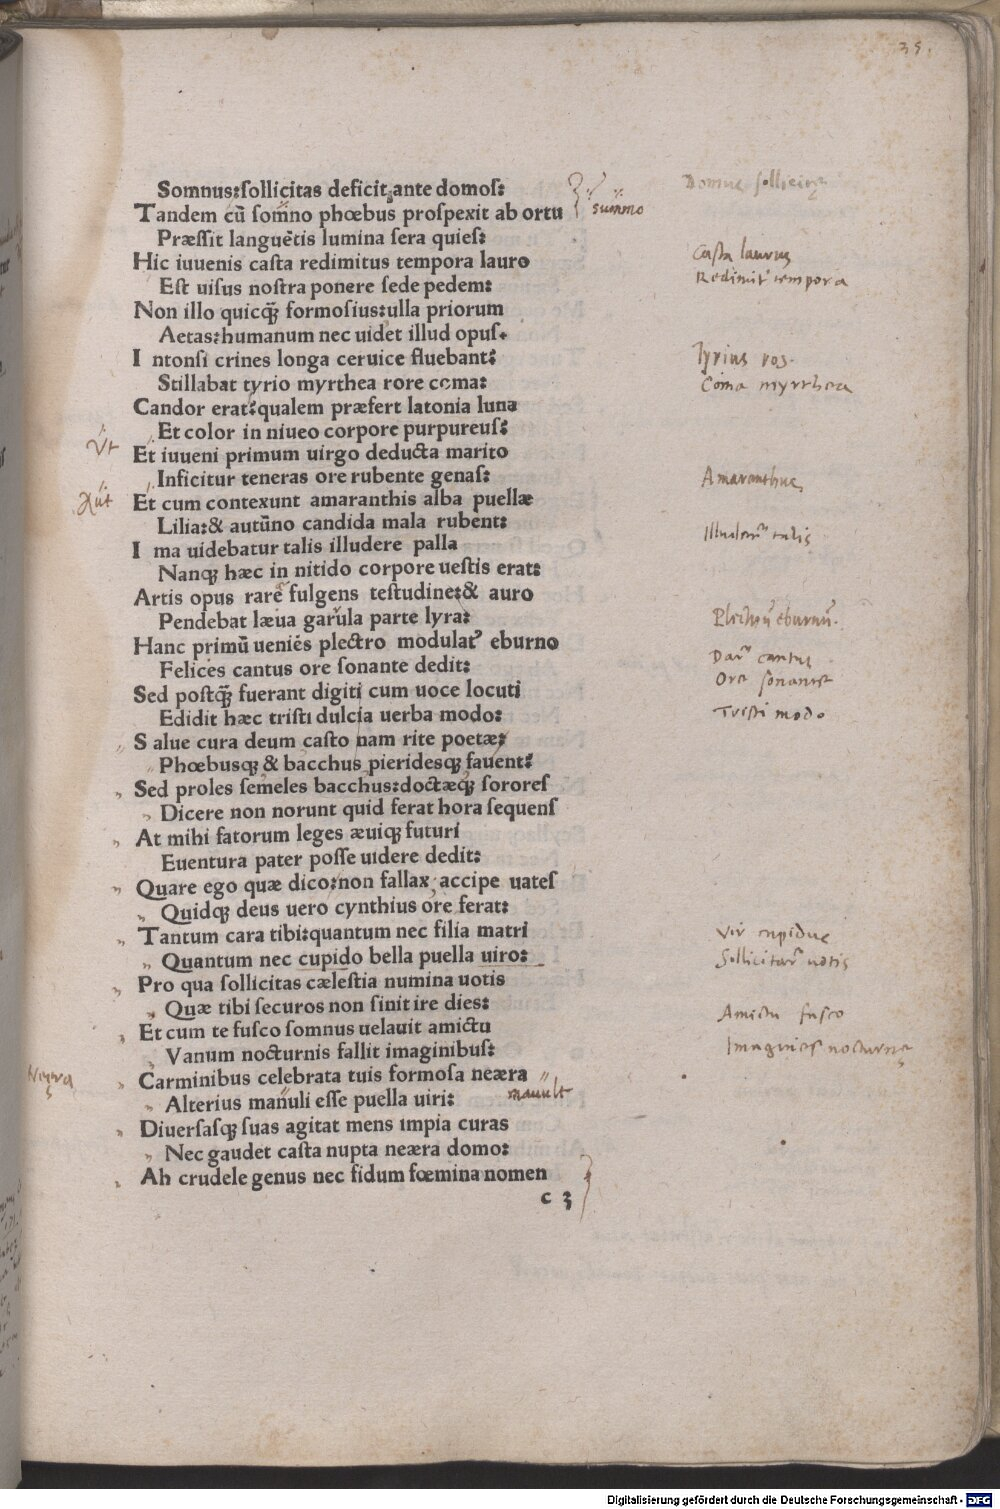 35.
Somnus:ſollicitas deficit ante domoſ: Domus ſollicitę
Tandem cū ſomno phœbus proſpexit ab ortu summo
Præſſit languētis lumina ſera quieſ:
Hic iuuenis caſta redimitus tempora lauro Caſta laurus
Eſt uiſus noſtra ponere ſede pedem: Redimit' tempora
Non illo quicq̃ formoſius:ulla priorum
Aetas:humanum nec uidet illud opuſ.
I ntonſi crines longa ceruice fluebant: Tyrius ros.
Stillabat tyrio myrthea rore coma: Coma myrrhea
Candor erat:qualem præfert latonia luna
Et color in niueo corpore purpureuſ:
Vt
Et iuueni primum uirgo deducta marito
Inficitur teneras ore rubente genaſ: Amaranthus
Aut
Et cum contexunt amaranthis alba puellæ
Lilia:& autūno candida mala rubent: Illuder' talis
I ma uidebatur talis illudere palla
Nanqȝ hæc in nitido corpore ueſtis erat:
Artis opus rarę fulgens teſtudine:& auro
Pendebat læua garula parte lyra: Plectrū eburnū.
Hanc primū ueniēs plectro modulat' eburno
Felices cantus ore ſonante dedit: Dar' cantus
Sed poſtq̃ fuerant digiti cum uoce locuti Ore ſonante
Edidit hæc triſti dulcia uerba modo: Triſti modo
S alue cura deum caſto nam rite poetæ:
Phœbusqȝ & bacchus pieridesqȝ fauent:
Sed proles ſemeles bacchus:doctæqȝ ſororeſ
Dicere non norunt quid ferat hora ſequenſ
At mihi fatorum leges æuiqȝ futuri
Euentura pater poſſe uidere dedit:
Quare ego quæ dico:non fallax accipe uateſ
Quidqȝ deus uero cynthius ore ferat:
Tantum cara tibi:quantum nec filia matri Vir cupidus
Quantum nec cupido bella puella uiro: Sollicitar' uotis
Pro qua ſollicitas cæleſtia numina uotis
Quæ tibi ſecuros non ſinit ire dies: Amictu fuſco
Et cum te fuſco ſomnus uelauit amictu
Vanum nocturnis fallit imaginibuſ: Imagines nocturnę
Neęra
Carminibus celebrata tuis formoſa neæra
Alterius manuli eſſe puella uiri: mauult
Diuerſaſqȝ ſuas agitat mens impia curas
Nec gaudet caſta nupta neæra domo:
Ah crudele genus nec fidum fœmina nomen
c 3
Digitalisierung gefördert durch die Deutsche Forschungsgemeinschaft - DFG